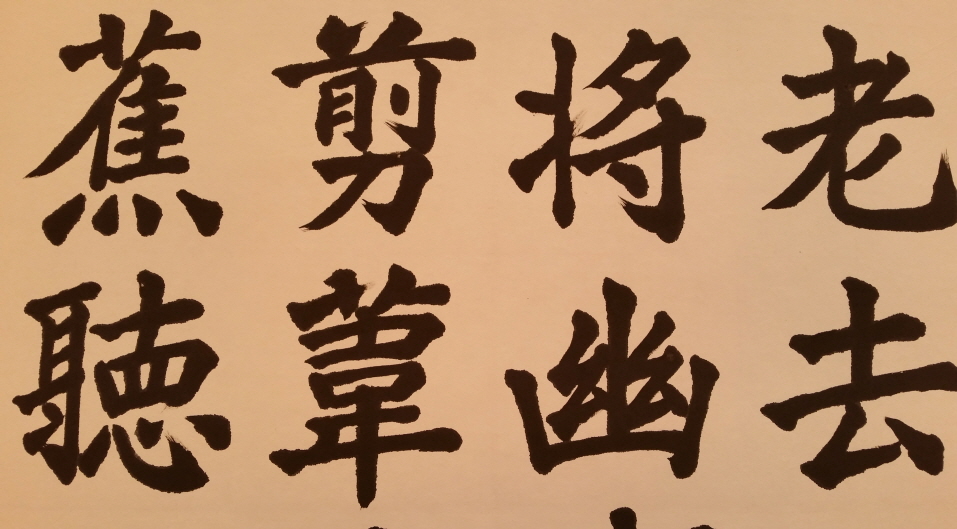 老去
將幽
剪葦
蕉聽